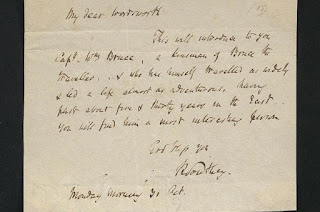 My dear Wordsworth
This will introduce to you
Capt. Wm Bruce, a kinsman of Bruce the
traveller, & who has himself travelled as widely
& led a life almost as adventurous, having
past about five & thirty years in the East.
You will find him a most interesting person
God bless you
R Southey.
Monday morning 30 Oct.